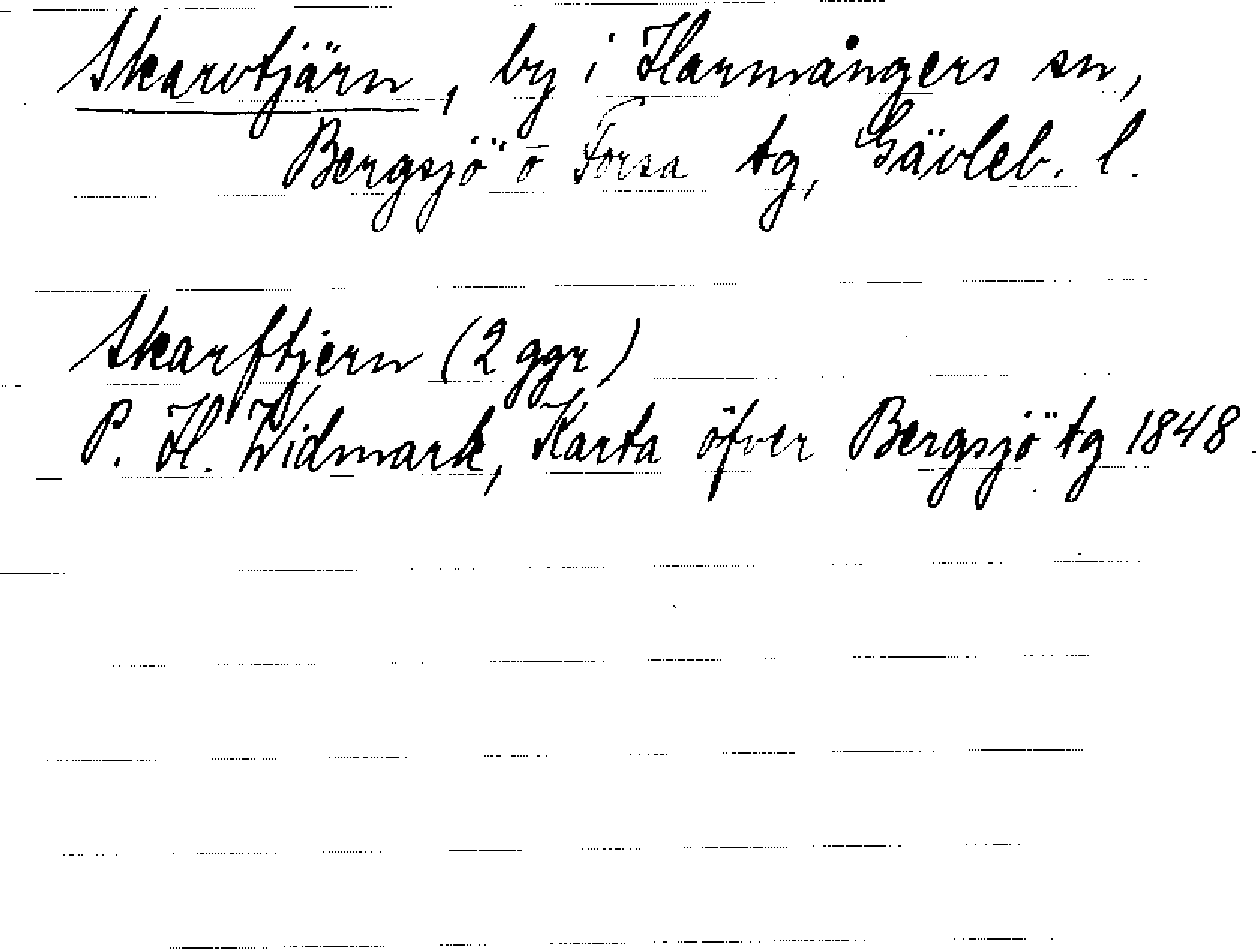 Skarvtjärn, by i Harmångers sn,
Bergsjö o Forsa tg, Gävleb. l.
Skarftjern (2 ggr)
P. H. Widmark, Karta öfver Bergsjö tg 1848.